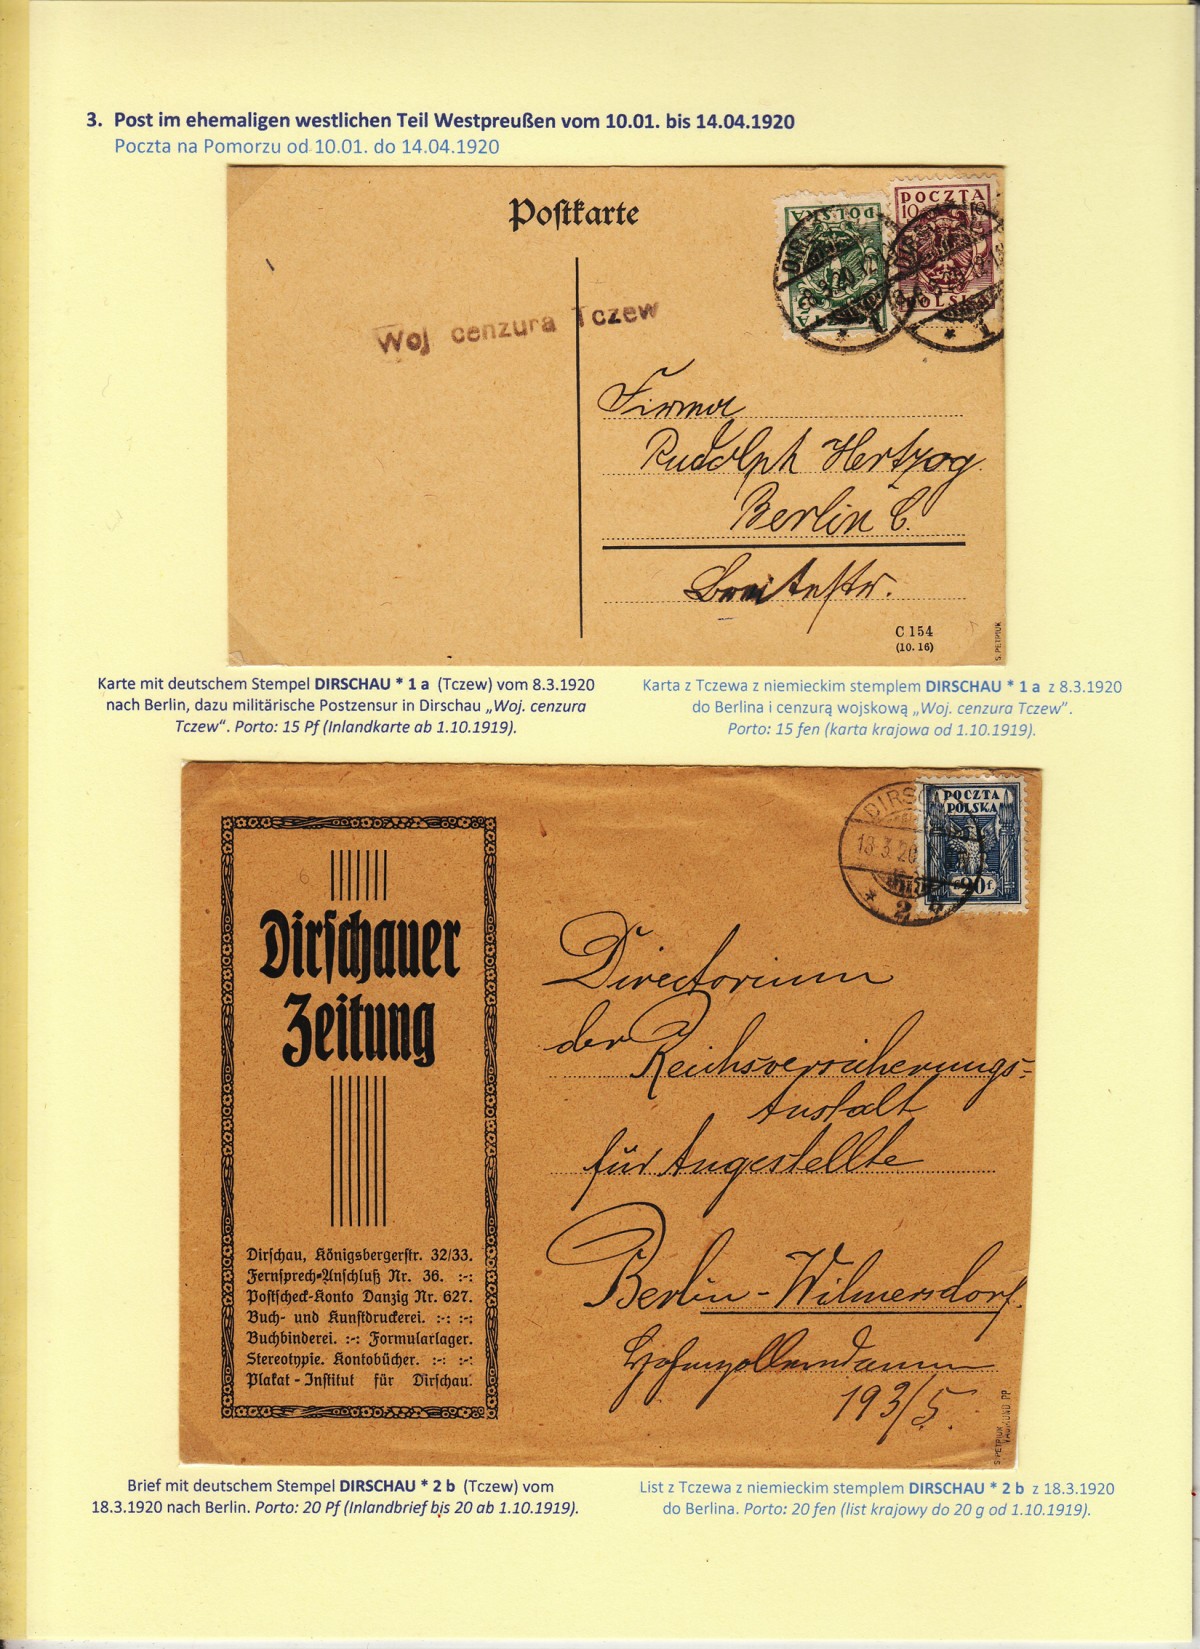 3. Post im ehemaligen westlichen Teil Westpreußen vom 10.01. bis 14.04.1920
Poczta na Pomorzu od 10.01. do 14.04.1920
Postkarte
POCZTA
10
POLSKA
POLSKA
8.3.20
Woj cenzura Tczew
Firma
Rudolph Hertzog
Berlin C.
Breitestr.
C 154
(10. 16)
S. PETRIUK
Karte mit deutschem Stempel DIRSCHAU * 1 a (Tczew) vom 8.3.1920
nach Berlin, dazu militärische Postzensur in Dirschau „Woj. cenzura
Tczew“. Porto: 15 Pf (Inlandkarte ab 1.10.1919).
Karta z Tczewa z niemieckim stemplem DIRSCHAU * 1 a z 8.3.1920
do Berlina i cenzurą wojskową „Woj. cenzura Tczew”.
Porto: 15 fen (karta krajowa od 1.10.1919).
POCZTA
POLSKA
20 f
18.3.20
* 2 b
Dirschauer
Zeitung
Dirschau, Königsbergerstr. 32/33.
Fernsprech-Anschluß Nr. 36. :-:
Postscheck-Konto Danzig Nr. 627.
Buch- und Kunstdruckerei. :-: :-:
Buchbinderei. :-: Formularlager.
Stereotypie. Kontobücher. :-: :-:
Plakat-Institut für Dirschau.
Directorium
der Reichsversicherungs-
Anstalt
für Angestellte
Berlin-Wilmersdorf.
Hohenzollerndamm
193/5.
S. PETRIUK
Brief mit deutschem Stempel DIRSCHAU * 2 b (Tczew) vom
18.3.1920 nach Berlin. Porto: 20 Pf (Inlandbrief bis 20 ab 1.10.1919).
List z Tczewa z niemieckim stemplem DIRSCHAU * 2 b z 18.3.1920
do Berlina. Porto: 20 fen (list krajowy do 20 g od 1.10.1919).